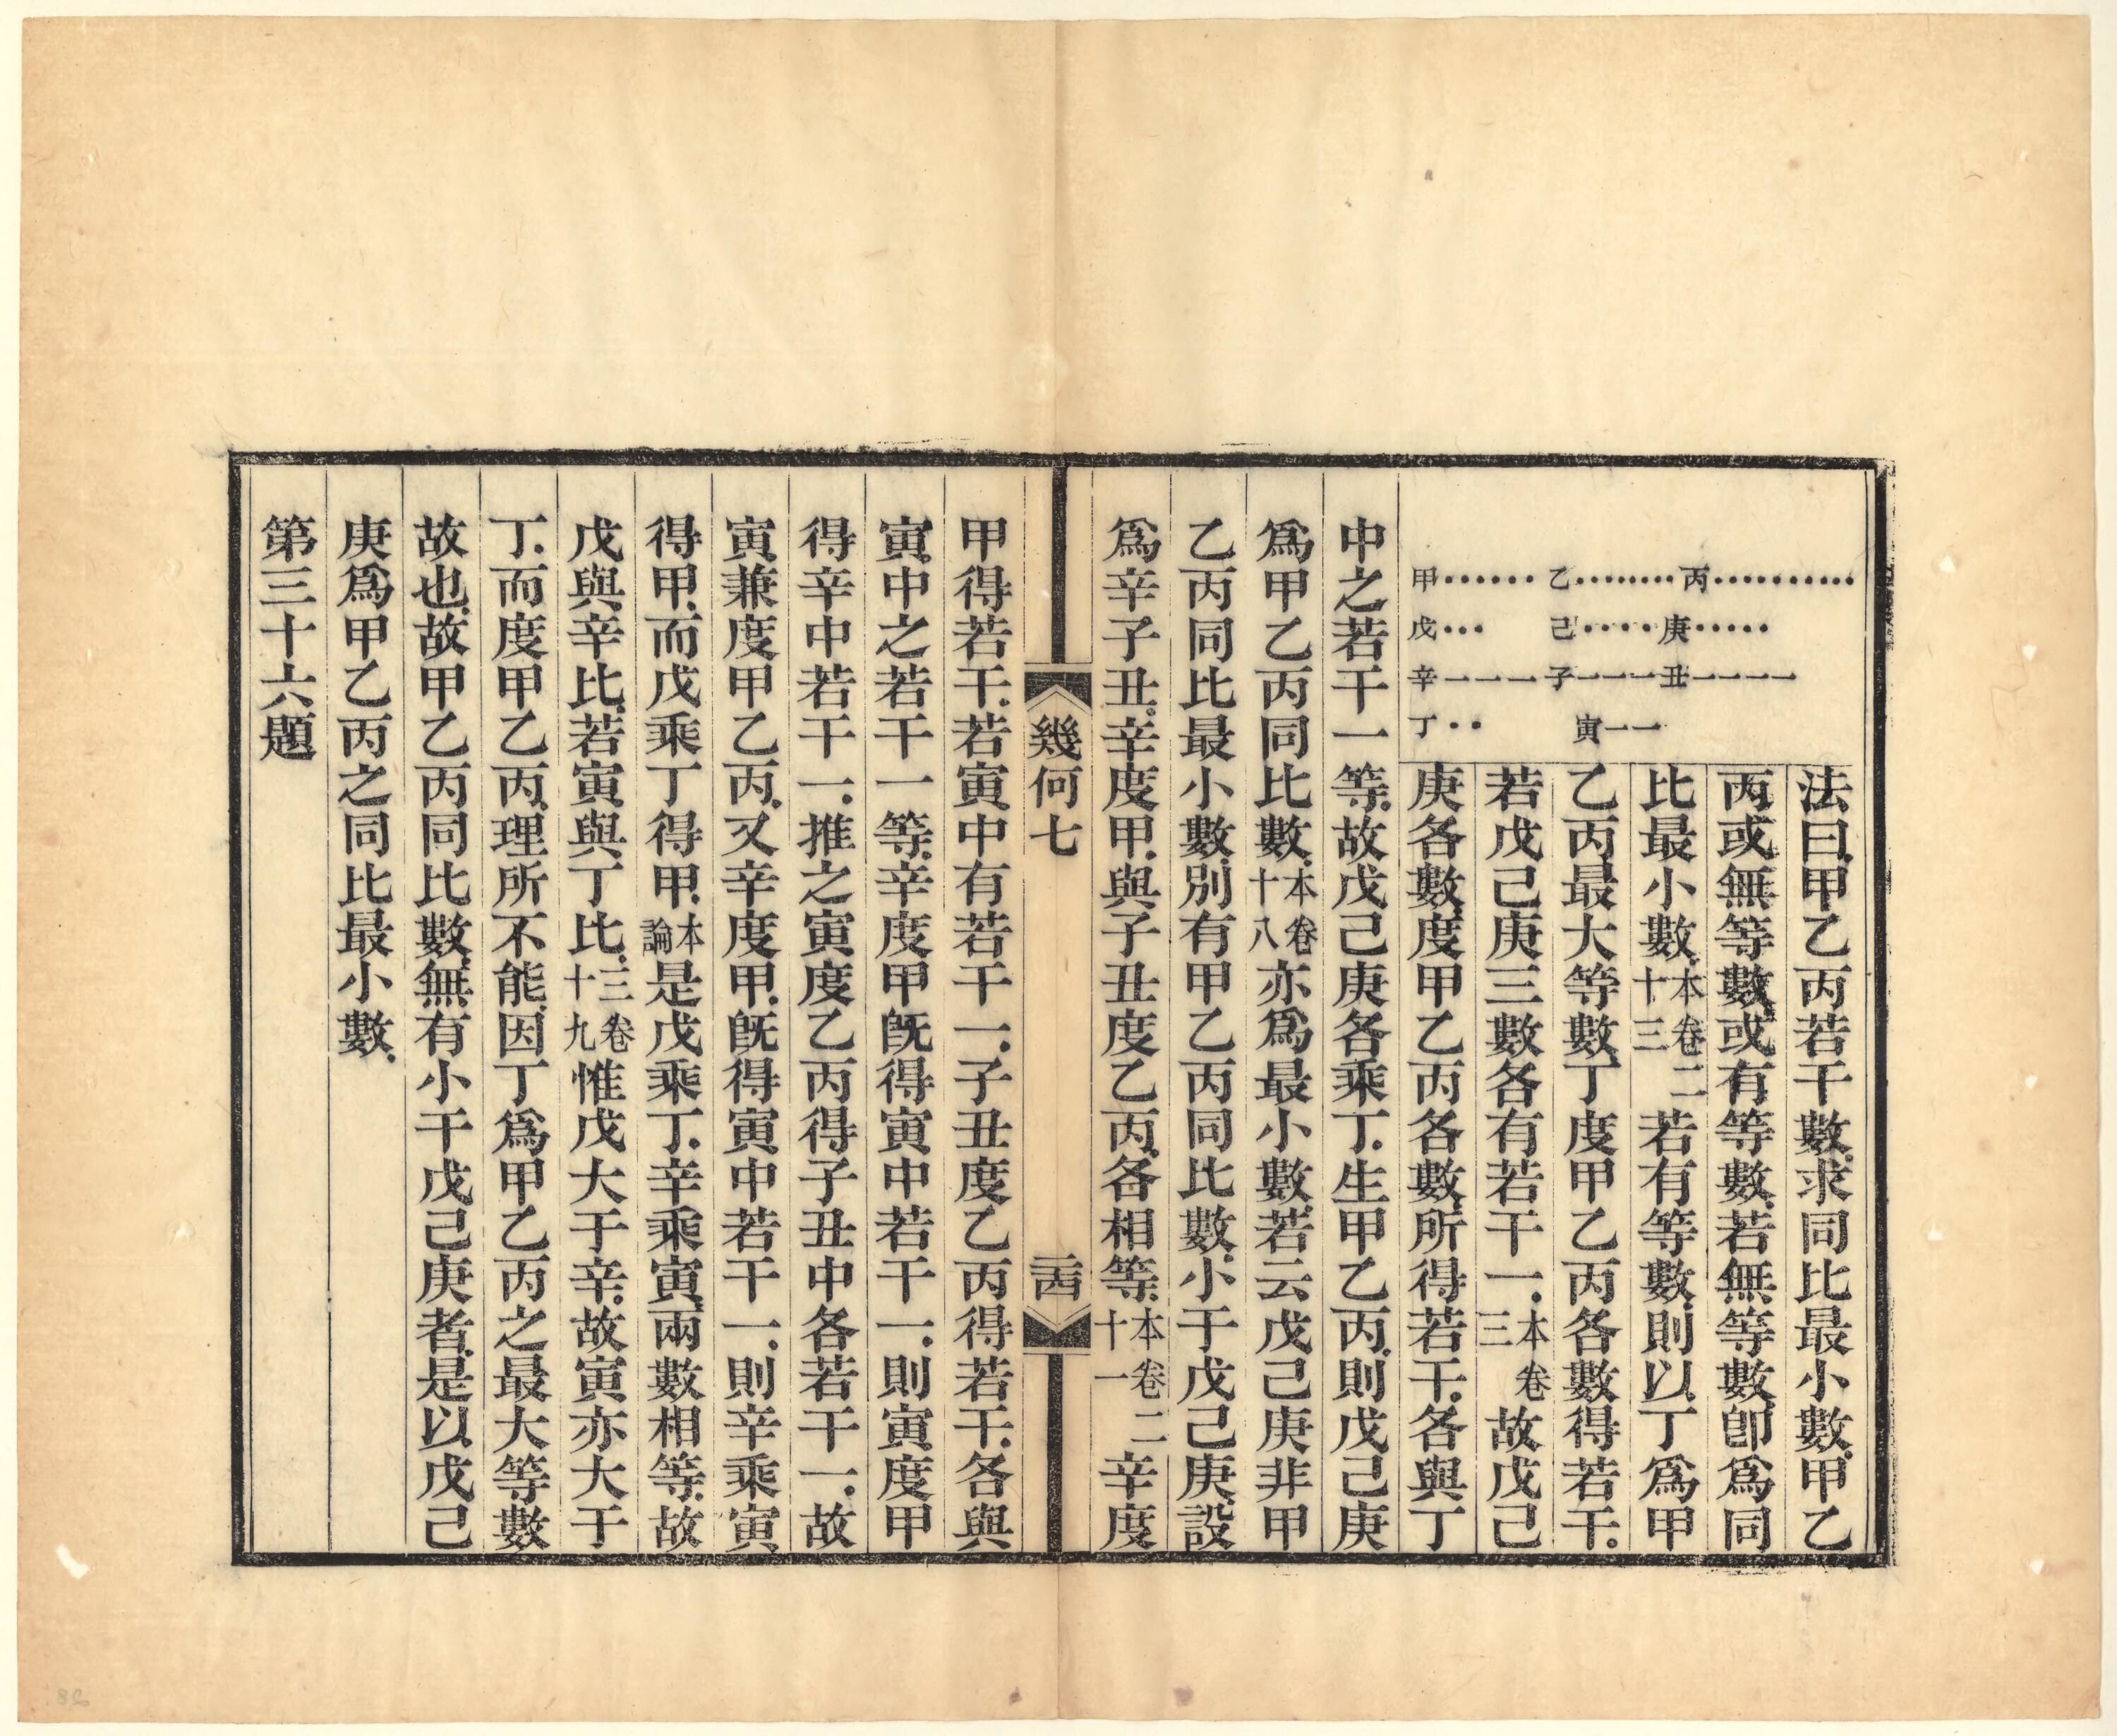 甲······ 乙········ 丙··········
戊··· 己···· 庚·····
辛一一一 子一一一 丑一一一一
丁·· 寅一一
法曰.甲乙丙若干數.求同比最小數.甲乙
丙或無等數.或有等數.若無等數.卽爲同
比最小數.本卷二十三若有等數.則以丁爲甲
乙丙最大等數.丁度甲乙丙各數得若干.
若戊己庚三數各有若干一.本卷三故戊己
庚各數.度甲乙丙各數.所得若干.各與丁
中之若干一等.故戊己庚各乘丁.生甲乙丙.則戊己庚
爲甲乙丙同比數.本卷十八亦爲最小數.若云戊己庚非甲
乙丙同比最小數.別有甲乙丙同比數.小于戊己庚.設
爲辛子丑.辛度甲.與子丑度乙丙.各相等.本卷二十一辛度
幾何七
二十四
甲得若干.若寅中有若干一.子丑度乙丙得若干.各與
寅中之若干一等.辛度甲旣得寅中若干一.則寅度甲
得辛中若干一.推之寅度乙丙得子丑中各若干一.故
寅兼度甲乙丙.又辛度甲.旣得寅中若干一.則辛乘寅
得甲.而戊乘丁得甲.本論是戊乘丁.辛乘寅.兩數相等.故
戊與辛比.若寅與丁比.三卷十九惟戊大于辛.故寅亦大于
丁.而度甲乙丙.理所不能.因丁爲甲乙丙之最大等數
故也.故甲乙丙同比數.無有小干戊己庚者.是以戊己
庚爲甲乙丙之同比最小數.
第三十六題